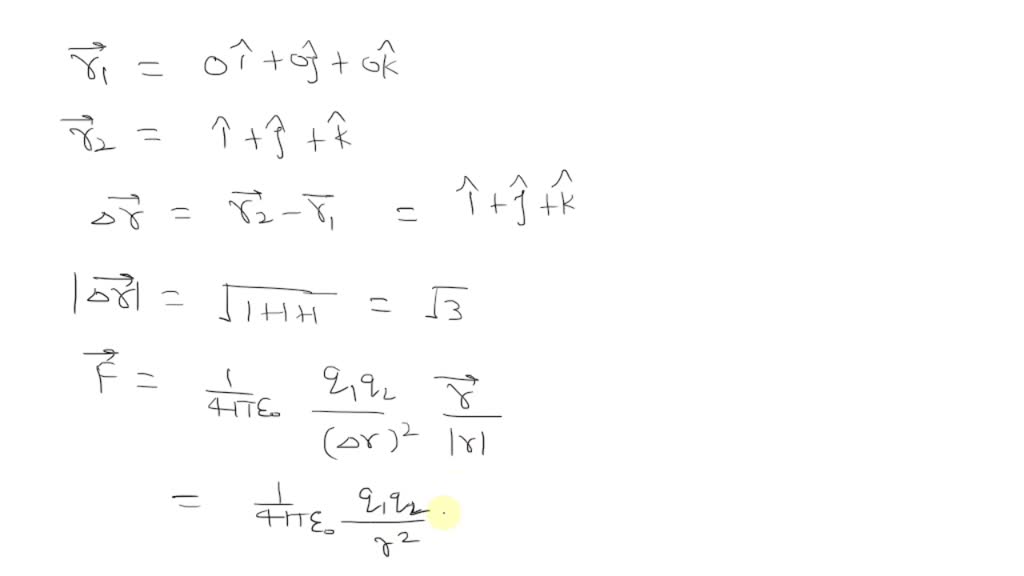 r⃗₁ = 0î + 0ĵ + 0k̂
r⃗₂ = î + ĵ + k̂
Δr⃗ = r⃗₂ − r̅₁ = î + ĵ + k̂
|Δr⃗| = √(1+1+1) = √3
F⃗ = 1/(4πε₀) q₁q₂/(Δr)² r⃗/|r|
= 1/(4πε₀) q₁q₂/r² ·